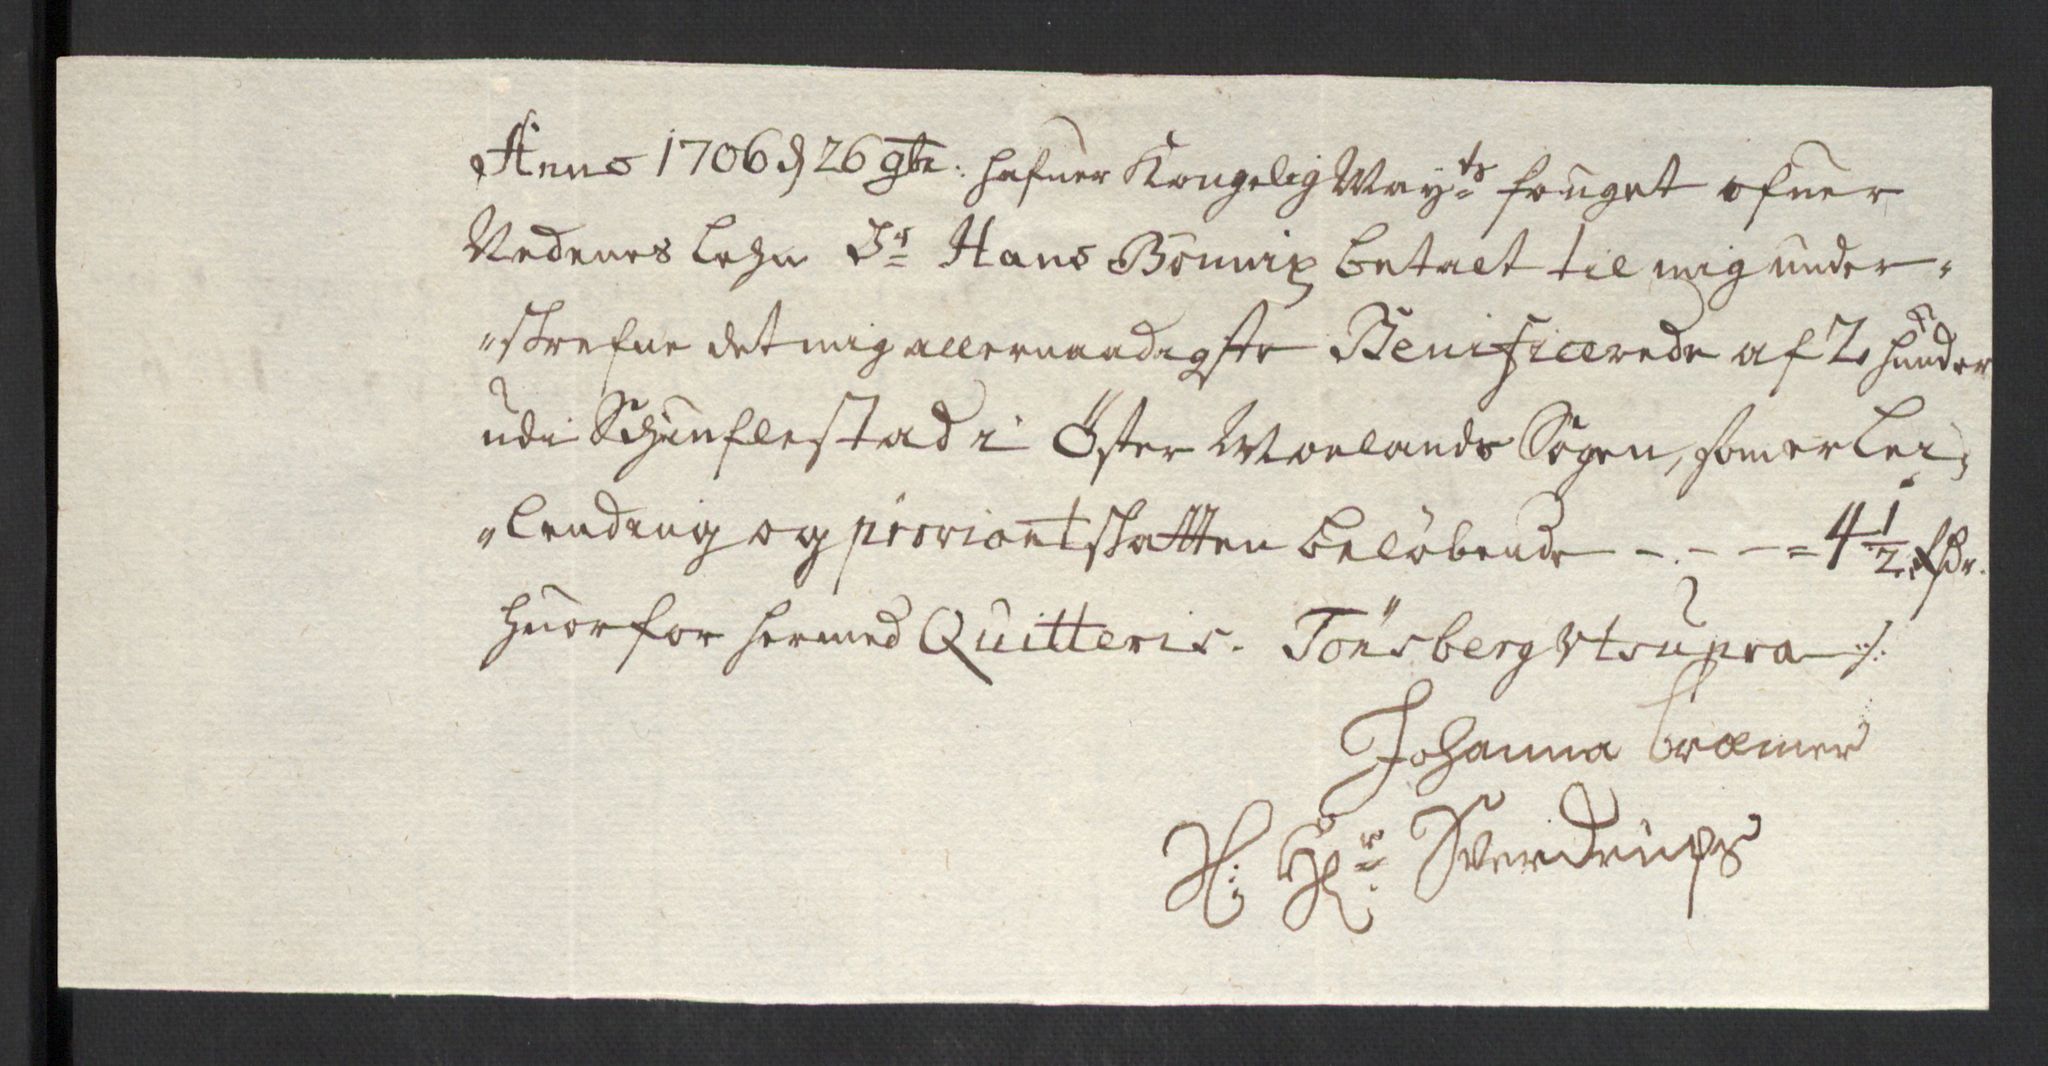 Anno 1706 d 26 9br: hafuer Kongelig May:ts fouget ofuer
Nedenes Lehn Sr Hans Bonnix betalt til mig under-
-skrefne det mig allernaadigste Benificerede af 2 hunder
udi i Öster Molands Sogen, som er Lei-
-lending og proviantskatten belöbende - - - = 4 1/2 Rdr.
huorfor hermed Quitteris. Tönsberg Vt supra ./.
Johanna Cræmer
Sl: Hr: Sverdrups